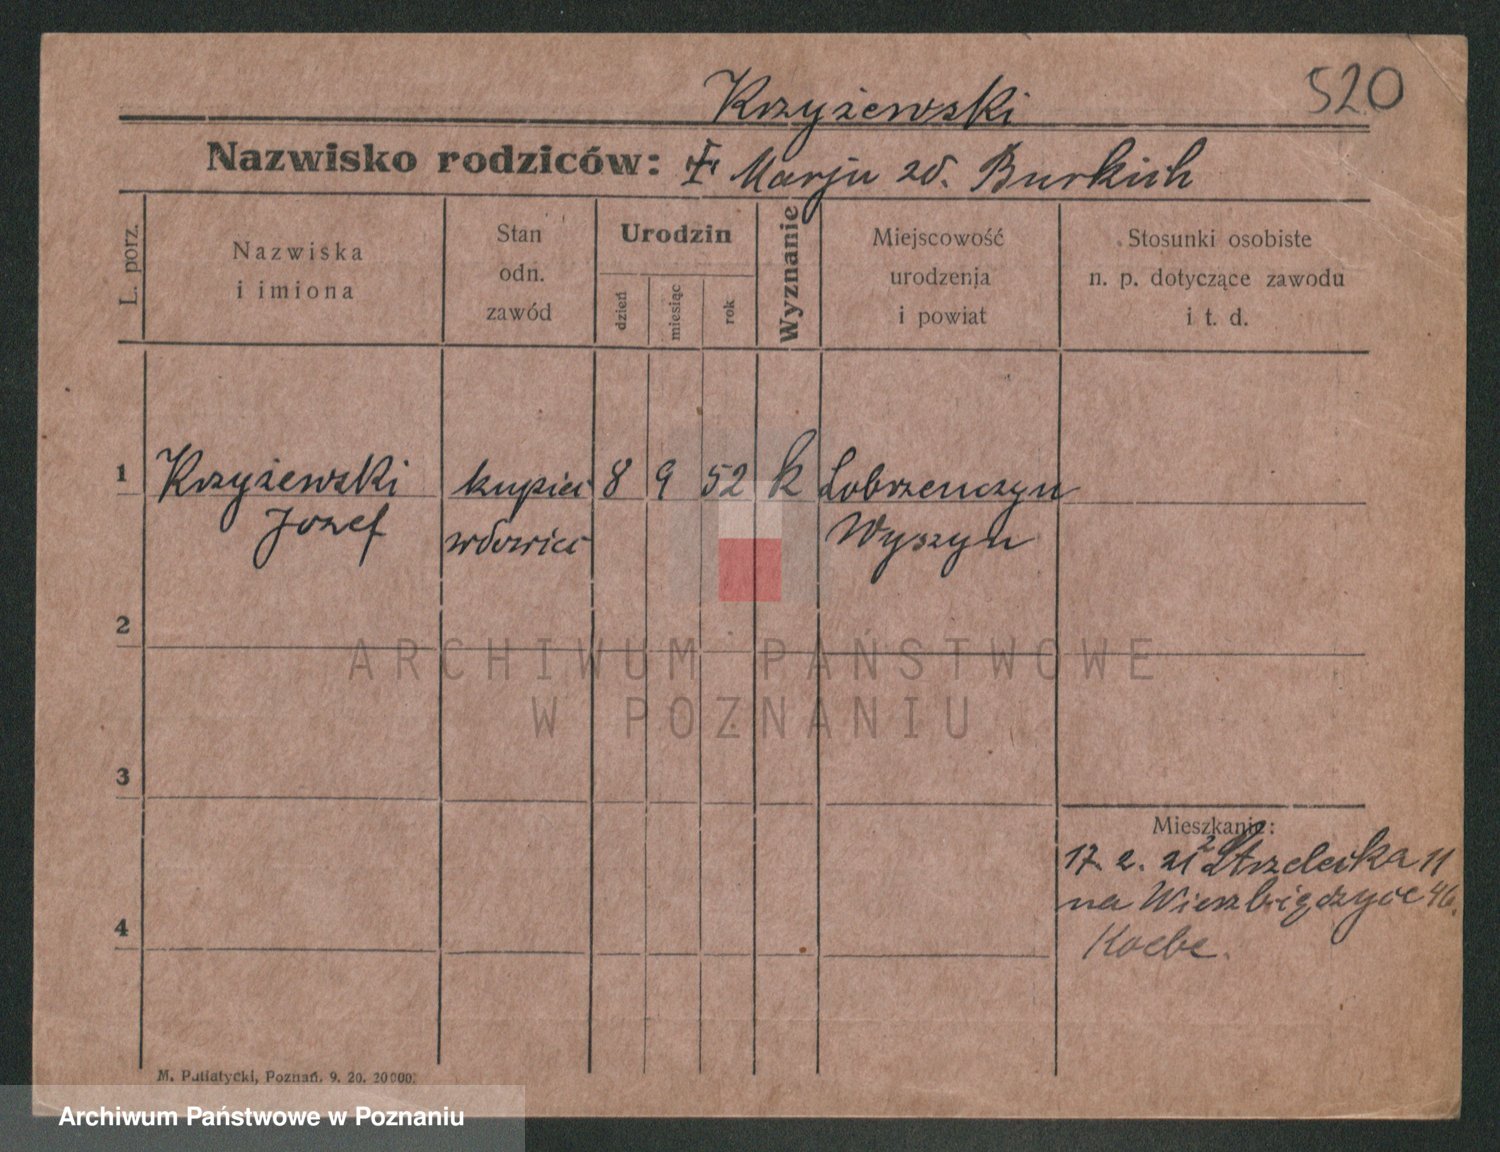 Krzyżewski
520
Nazwisko rodziców: F Marju zd. Burkich
L. porz.
Nazwiska
i imiona
Stan
odn.
zawód
Urodzin
dzień
miesiąc
rok
Wyznanie
Miejscowość
urodzenia
i powiat
Stosunki osobiste
n. p. dotyczące zawodu
i t. d.
1 Krzyżewski kupiec 8 9 52 k Lobrzenczyn
Jozef wdowiec Wyszyn
2
ARCHIWUM PAŃSTWOWE
W POZNANIU
3
Mieszkanie:
17. 2. 21 Strzelecka 11
na Wierzbięcyce 46.
4
Koebe.
M. Putiatycki, Poznań. 9. 20. 20000.
Archiwum Państwowe w Poznaniu